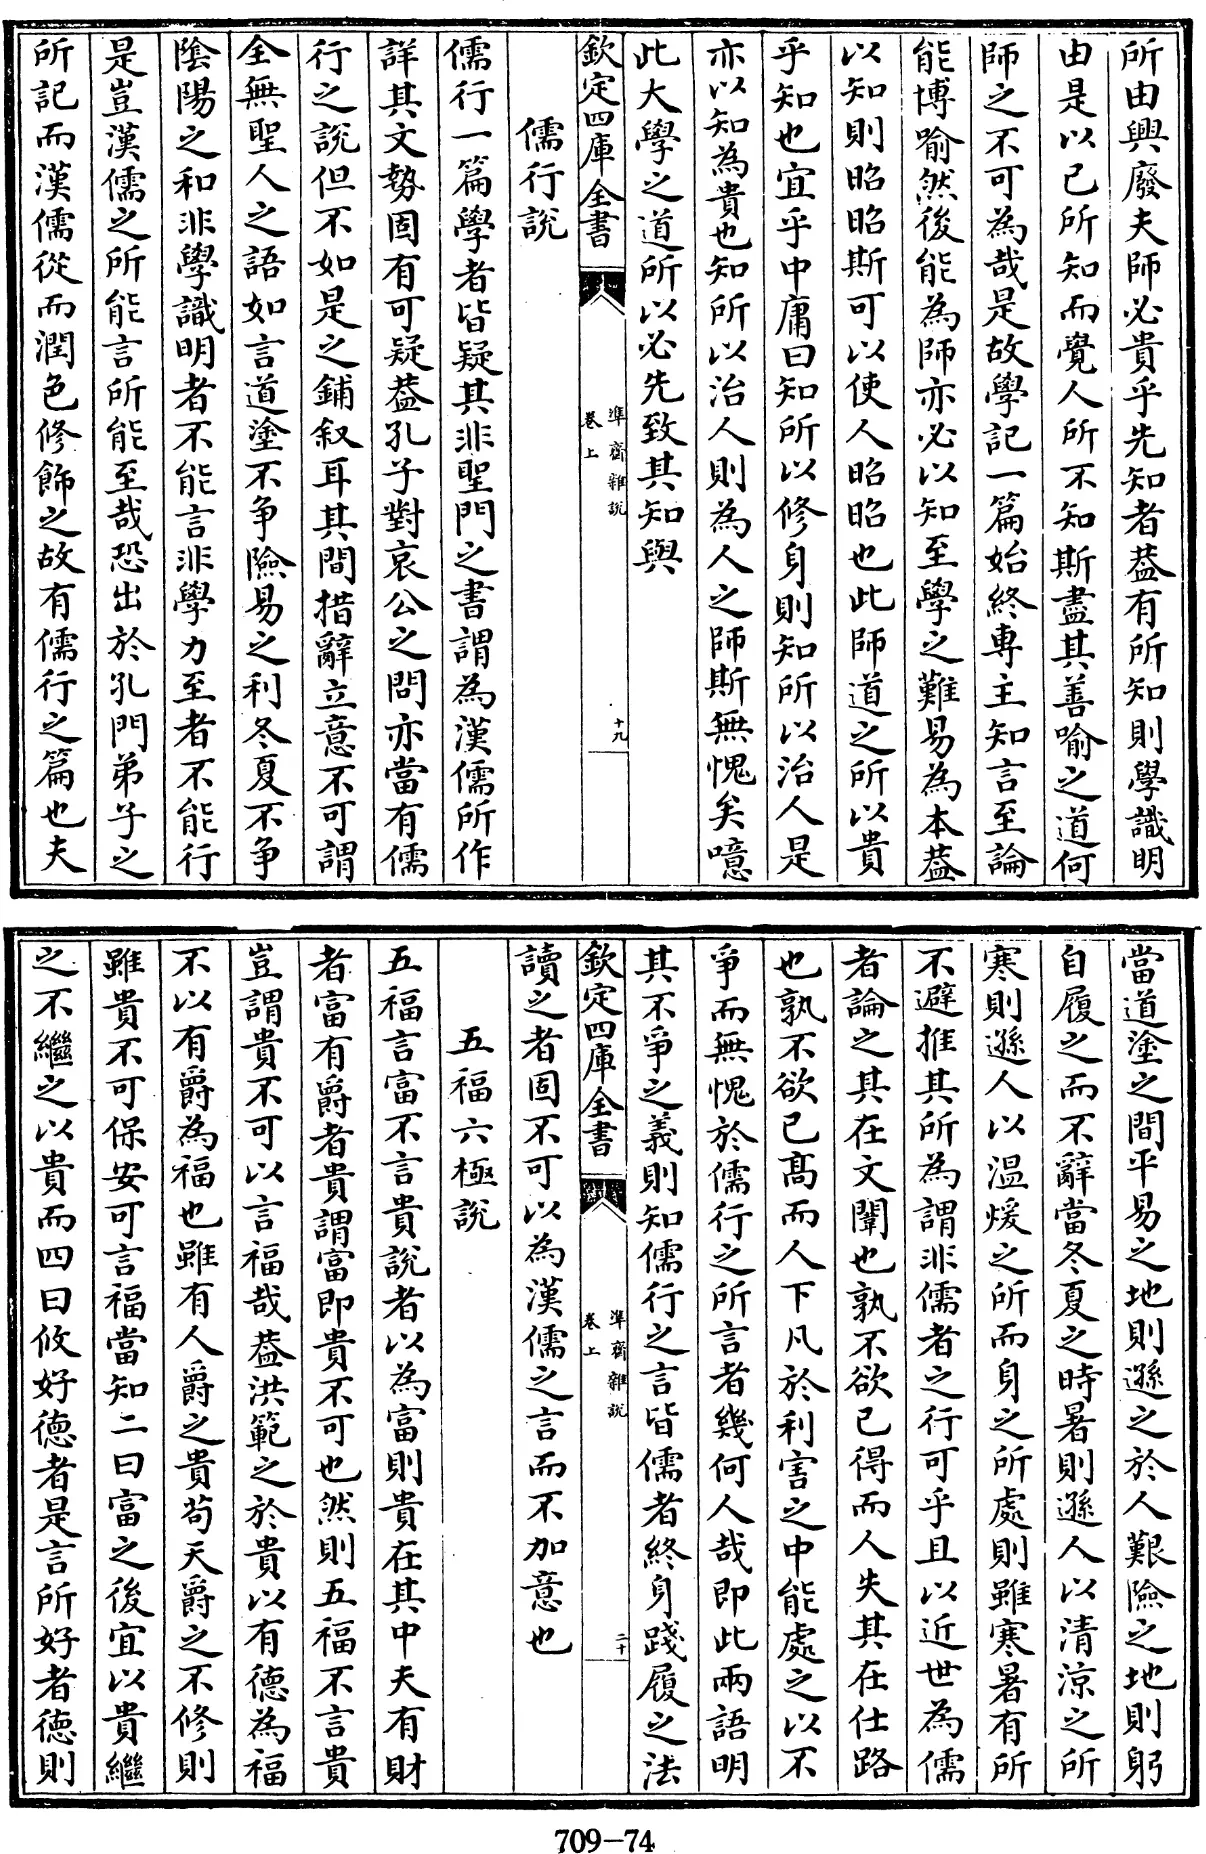 所由興廢夫師必貴乎先知者葢有所知則學識明
由是以已所知而覺人所不知斯盡其善喻之道何
師之不可為哉是故學記一篇始終専主知言至論
能博喻然後能為師亦必以知至學之難易為本葢
以知則昭昭斯可以使人昭昭也此師道之所以貴
乎知也宜乎中庸曰知所以修身則知所以治人是
亦以知為貴也知所以治人則為人之師斯無愧矣噫
此大學之道所以必先致其知與
欽定四庫全書
準齋雜説
卷上
十九
儒行説
儒行一篇學者皆疑其非聖門之書謂為漢儒所作
詳其文勢固有可疑葢孔子對哀公之問亦當有儒
行之説但不如是之鋪叙耳其間措辭立意不可謂
全無聖人之語如言道塗不争險易之利冬夏不争
陰陽之和非學識明者不能言非學力至者不能行
是豈漢儒之所能言所能至哉恐出於孔門弟子之
所記而漢儒從而潤色修飾之故有儒行之篇也夫
當道塗之間平易之地則遜之於人艱險之地則躬
自履之而不辭當冬夏之時暑則遜人以清涼之所
寒則遜人以温煖之所而身之所處則雖寒暑有所
不避推其所為謂非儒者之行可乎且以近世為儒
者論之其在文闈也孰不欲已得而人失其在仕路
也孰不欲已髙而人下凡於利害之中能處之以不
爭而無愧於儒行之所言者幾何人哉即此兩語明
其不爭之義則知儒行之言皆儒者終身踐履之法
欽定四庫全書
準齋雜説
卷上
二十
讀之者固不可以為漢儒之言而不加意也
五福六極説
五福言富不言貴説者以為富則貴在其中夫有財
者富有爵者貴謂富即貴不可也然則五福不言貴
豈謂貴不可以言福哉葢洪範之於貴以有德為福
不以有爵為福也雖有人爵之貴苟天爵之不修則
雖貴不可保安可言福當知二曰富之後宜以貴繼
之不繼之以貴而四曰攸好德者是言所好者德則
709-74